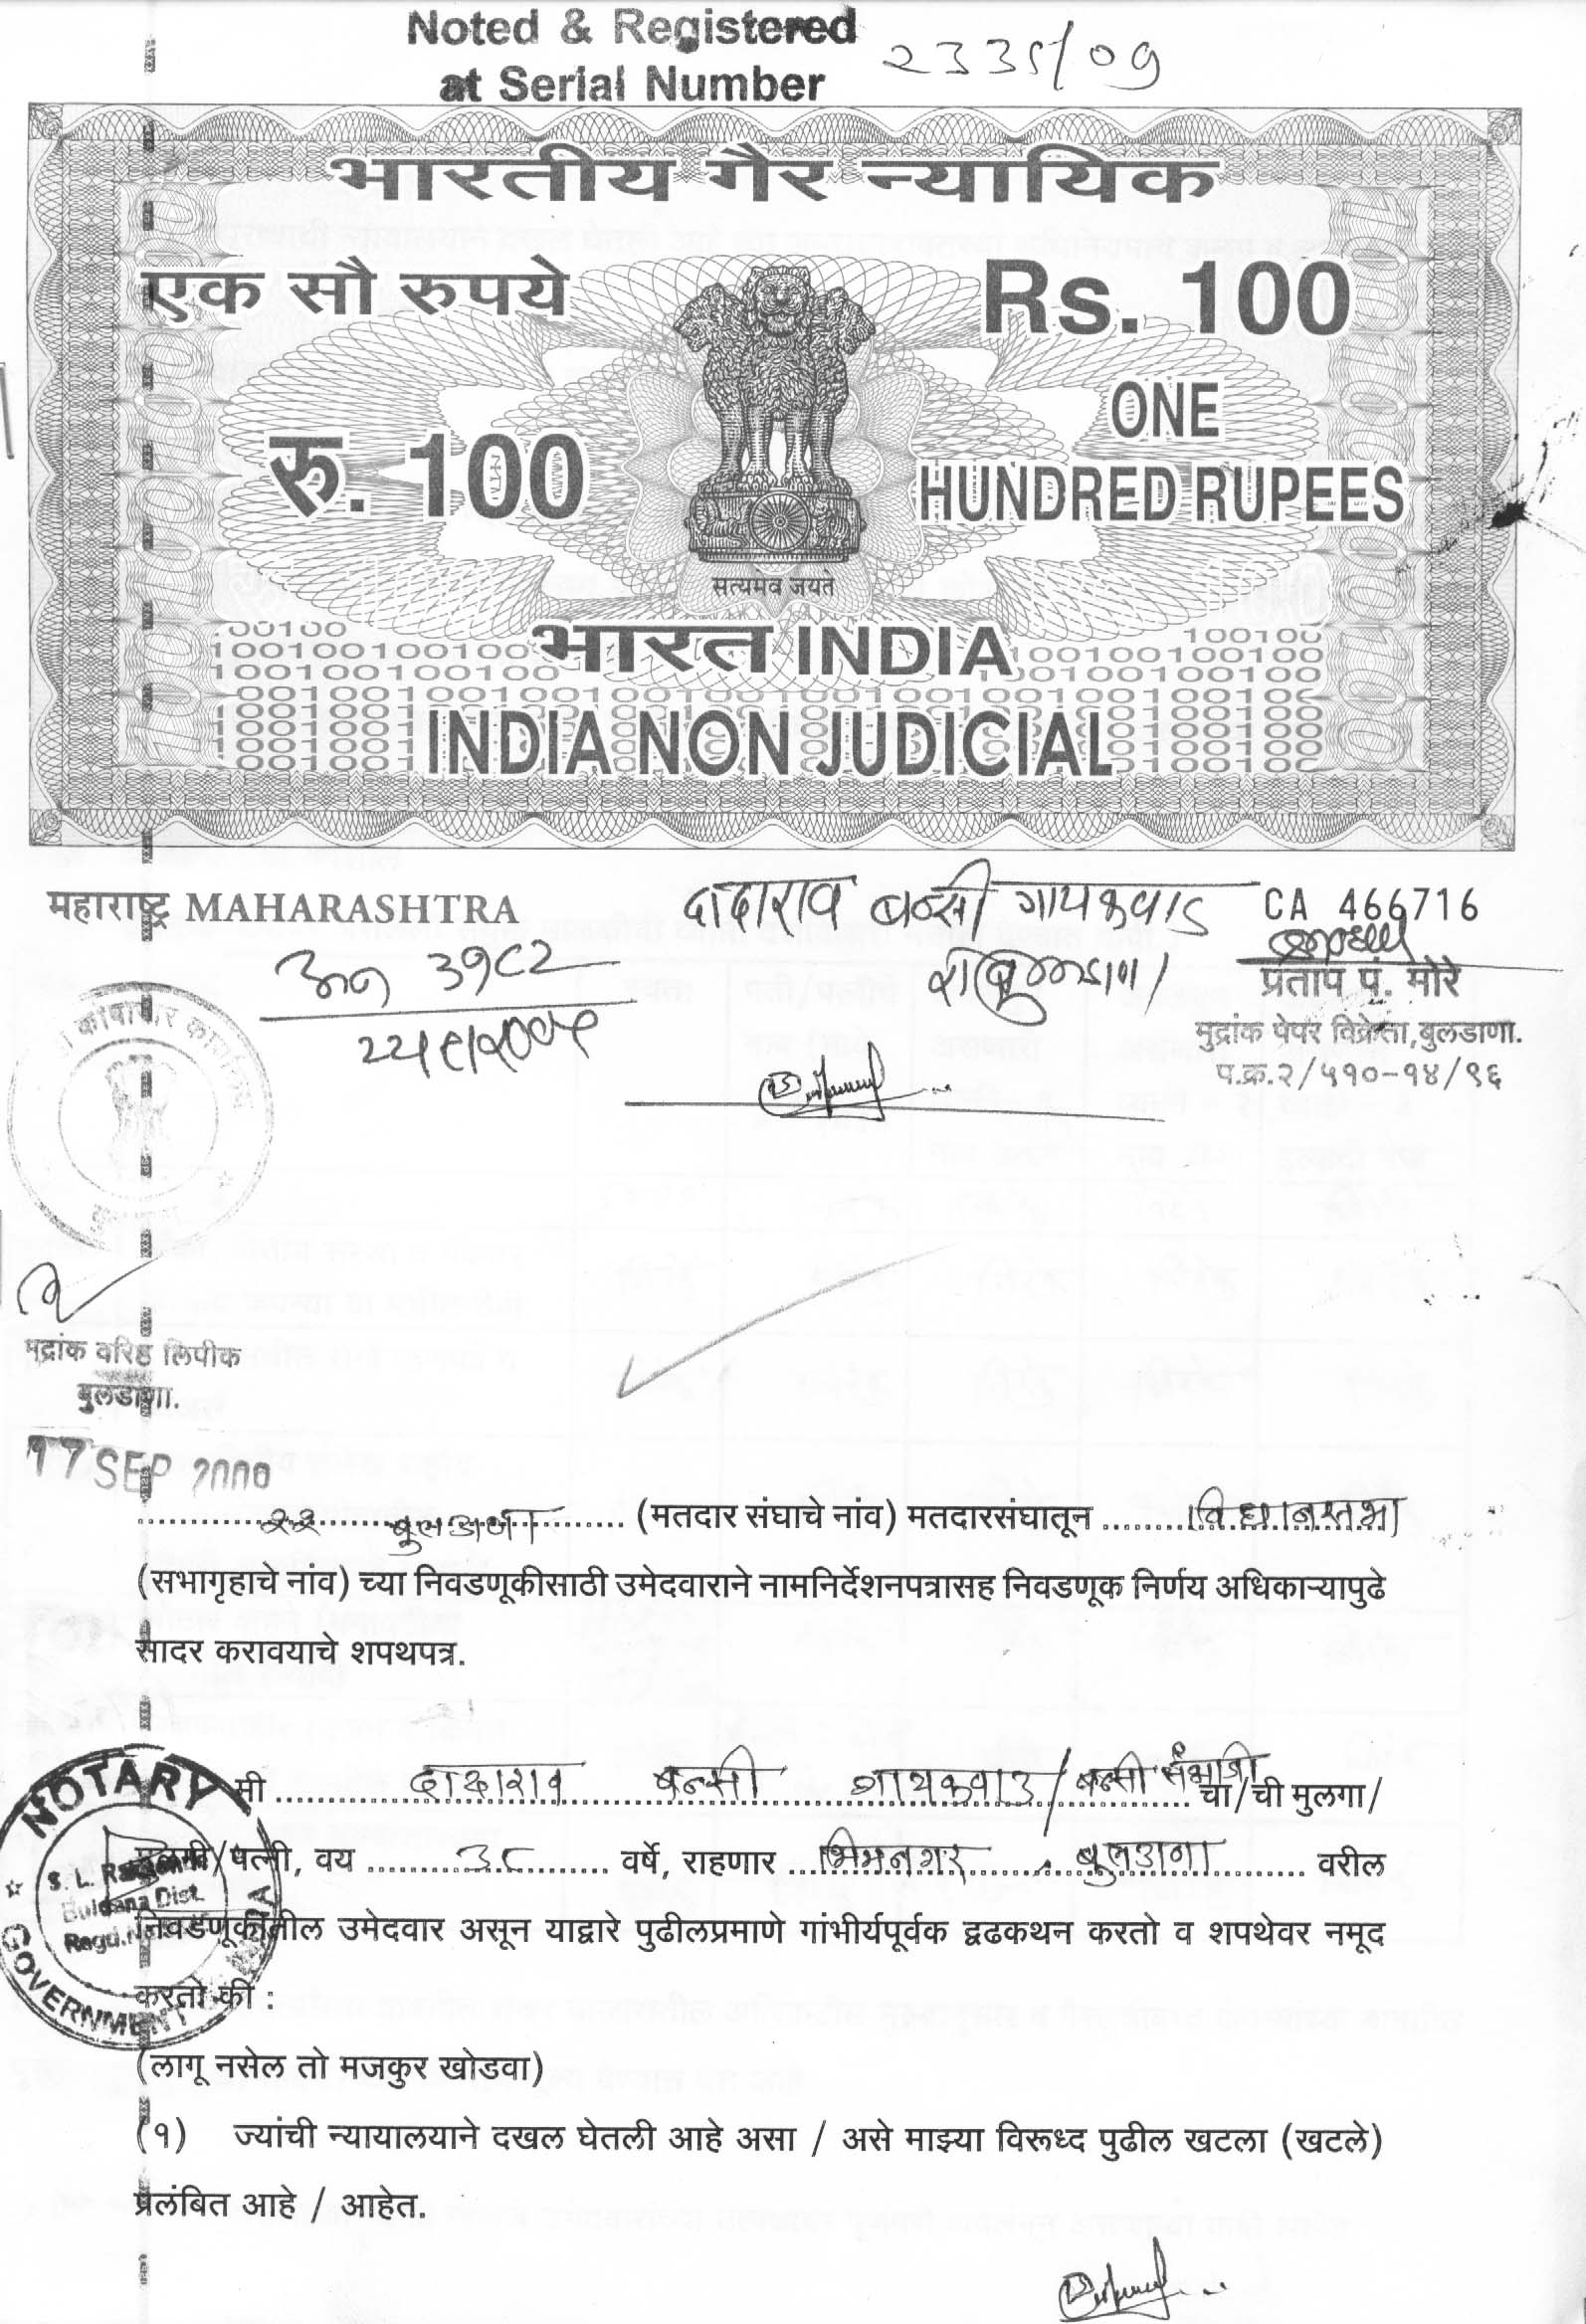 Noted & Registered
at Serial Number २३३५/०९
भारतीय गैर न्यायिक
एक सौ रुपये Rs. 100
रु. 100 ONE
HUNDRED RUPEES
सत्यमेव जयते
भारत INDIA
INDIA NON JUDICIAL
महाराष्ट्र MAHARASHTRA
दादाराव बन्सी गायकवाड CA 466716
३१८२
रा बुलडाणा
प्रताप पं. मोरे
मुद्रांक पेपर विक्रेता,बुलडाणा.
प.क्र.२/५१०-१४/९६
मद्रांक वरिष्ठ लिपीक
बुलडाणा.
17 SEP
२२ बुलडाणा (मतदार संघाचे नांव) मतदारसंघातून विधानसभा
(सभागृहाचे नांव) च्या निवडणूकीसाठी उमेदवाराने नामनिर्देशनपत्रासह निवडणूक निर्णय अधिकाऱ्यापुढे
सादर करावयाचे शपथपत्र.
मी दादाराव बन्सी गायकवाड / बन्सी संभाजी चा/ची मुलगा/
मुलगी/पत्नी, वय ३८ वर्षे, राहणार भिमनगर बुलडाणा वरील
निवडणूकीतील उमेदवार असून याद्वारे पुढीलप्रमाणे गांभीर्यपूर्वक द्वढकथन करतो व शपथेवर नमूद
करतो की :
(लागू नसेल तो मजकुर खोडवा)
(१) ज्यांची न्यायालयाने दखल घेतली आहे असा / असे माझ्या विरूध्द पुढील खटला (खटले)
प्रलंबित आहे / आहेत.
NOTARY
S. L.
Buldana Dist.
Regd.
GOVERNMENT